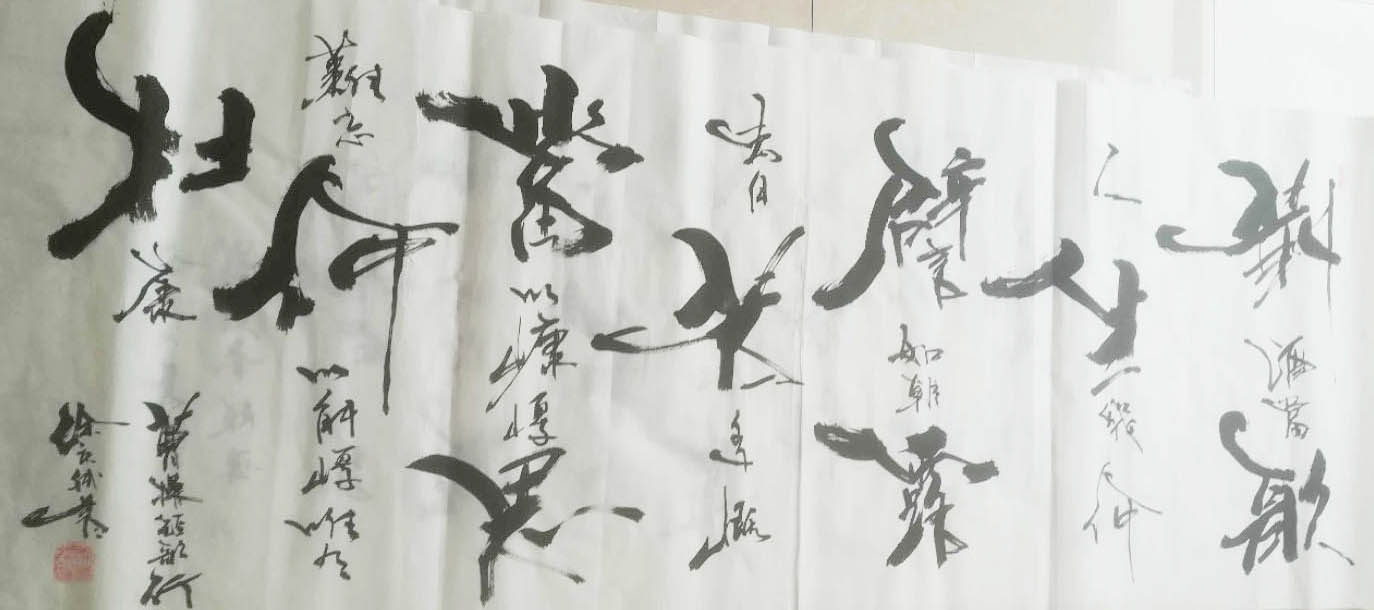 對酒當歌
人生幾何
譬如朝露
去日苦多慨
當以慷憂思
難忘何以解憂唯有
杜康
曹操短歌行